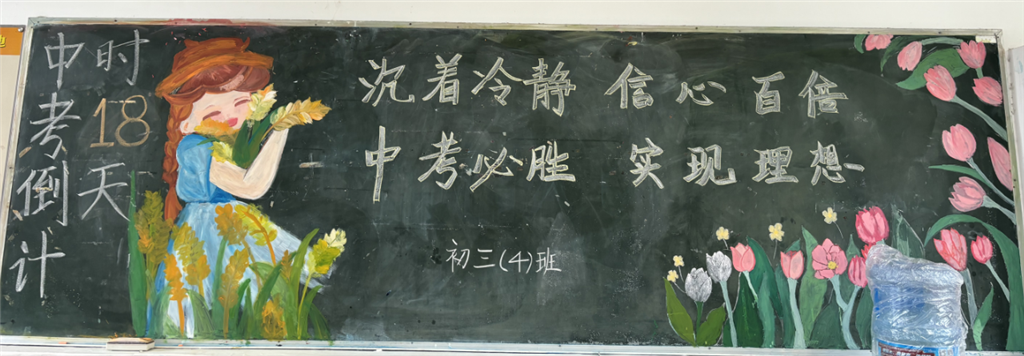 中考倒计
时18天
沉着冷静 信心百倍
中考必胜 实现理想
初三(4)班